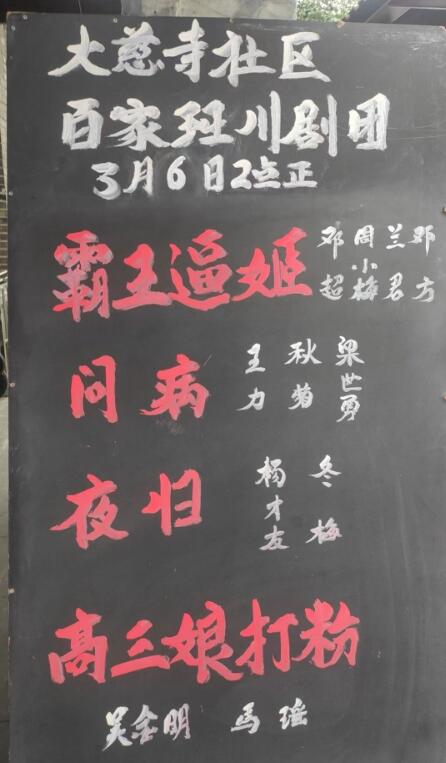 大慈寺社区
百家班川剧团
3月6日2点正
霸王逼姬 邓超 周小梅 兰君 邓方
问病 王力 秋菊 梁世勇
夜归 杨才友 冬梅
高三娘打粉
吴金明 马瑶